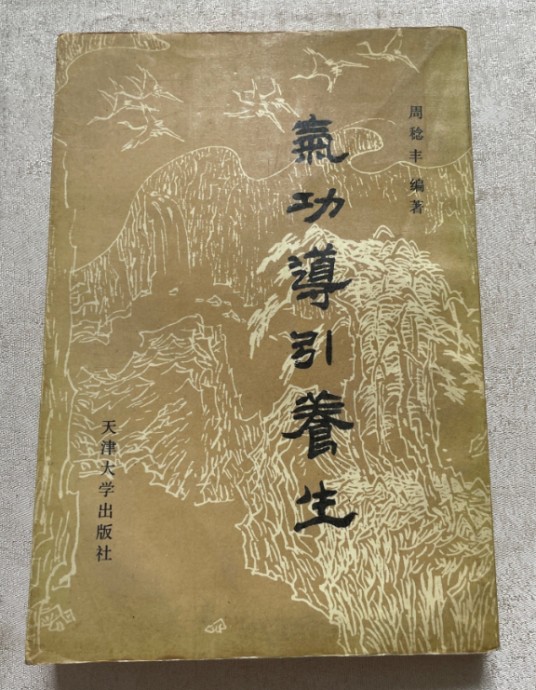 周稔丰 编著
氣功導引養生
天津大学出版社